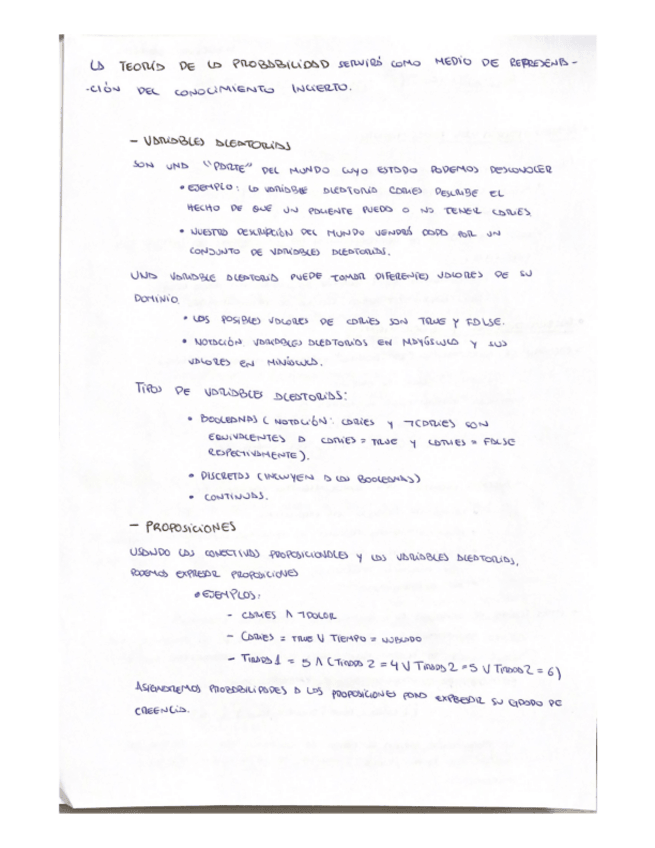 LA TEORÍA DE LA PROBABILIDAD SERVIRÁ COMO MEDIO DE REPRESENTA-
-CIÓN DEL CONOCIMIENTO INCIERTO.
- VARIABLES ALEATORIAS
SON UNA "PARTE" DEL MUNDO CUYO ESTADO PODEMOS DESCONOCER
• EJEMPLO: LA VARIABLE ALEATORIA CARIES DESCRIBE EL
HECHO DE QUE UN PACIENTE PUEDA O NO TENER CARIES.
• NUESTRA DESCRIPCIÓN DEL MUNDO VENDRÁ DADA POR UN
CONJUNTO DE VARIABLES ALEATORIAS.
UNA VARIABLE ALEATORIA PUEDE TOMAR DIFERENTES VALORES DE SU
DOMINIO.
• LOS POSIBLES VALORES DE CARIES SON TRUE Y FALSE.
• NOTACIÓN: VARIABLES ALEATORIAS EN MAYÚSCULA Y SUS
VALORES EN MINÚSCULA.
TIPOS DE VARIABLES ALEATORIAS:
• BOOLEANAS (NOTACIÓN: CARIES Y ¬CARIES SON
EQUIVALENTES A CARIES = TRUE Y CARIES = FALSE
RESPECTIVAMENTE).
• DISCRETAS (INCLUYEN A LAS BOOLEANAS)
• CONTINUAS.
- PROPOSICIONES
USANDO LAS CONECTIVAS PROPOSICIONALES Y LAS VARIABLES ALEATORIAS,
PODEMOS EXPRESAR PROPOSICIONES
• EJEMPLOS:
- CARIES ∧ ¬DOLOR
- CARIES = TRUE ∨ TIEMPO = NUBLADO
- TIRADA1 = 5 ∧ (TIRADA2 = 4 ∨ TIRADA2 = 5 ∨ TIRADA2 = 6)
ASIGNAREMOS PROBABILIDADES A LAS PROPOSICIONES PARA EXPRESAR SU GRADO DE
CREENCIA.